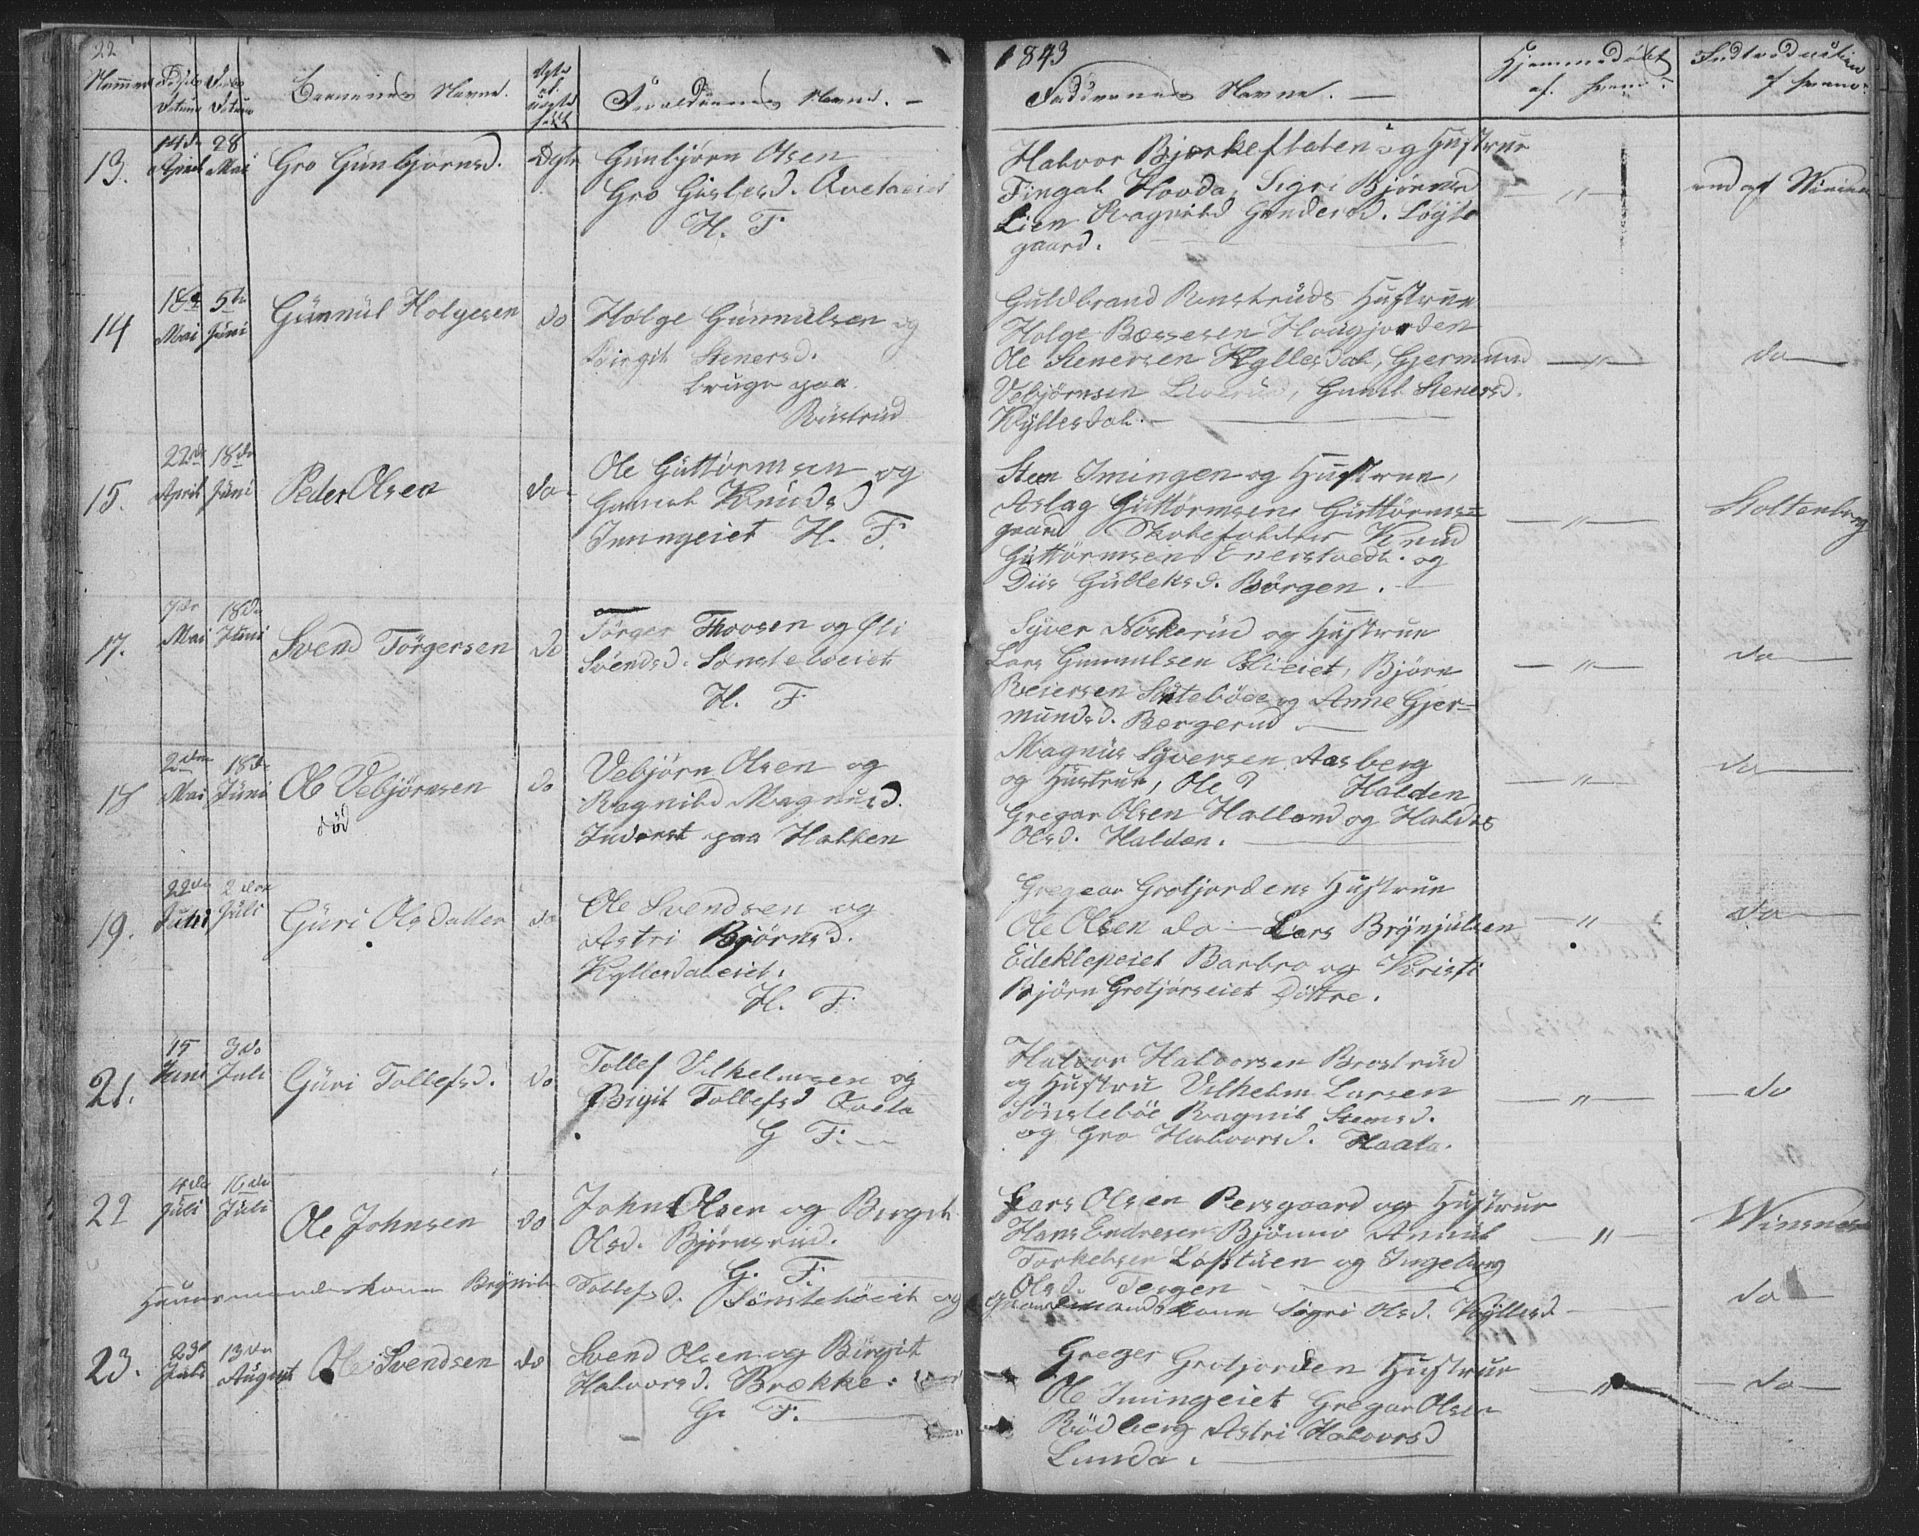 22
1843
Barnenes Navne.
Forældrenes Navne. —
Faddernes Navne. —
Hjemmedøbt
af hvem
Introduction
af hvem
13.
14de April
28 Mai
Gro Gunbjørnsd.
Ægte
Gunbjørn Olsen
Gro Gislesd. Qvetaeiet
H. F.
Halvor Bjerkeflaten og Hustrue
Fingal Hovda, Sigri Bjørnsd
Lien Ragnild Gundersd. Løgts
gaard.
— " —
14
18de Mai
5te Juni
Günnül Holgesen
do
Holge Günnulsen og
Birgit Stenersd.
bruge paa
Rustrud
Guldbrand Ronstruds Hustrue
Holge Bossesen Hougjorden
Ole Stenersen Kyllesdal, Gjermund
Vebjørnsen Liverud, Gunil Stenersd.
Kyllesdal. —
— " —
do —
15.
22de April
18de Juni
Peder Olsen
do
Ole Güttormsen og
Gunil Knudsd
Imingeiet H. F.
Sten Imingen og Hustrue,
Aslag Güttormsen Güttorms=
gaard Skoleholder Knud
Güttormsen Enerstvedt. og
Diis Gülleksd. Børgen.
— " —
Stoltenberg
17.
7de Mai
18de Juni
Svend Törgersen
do
Törger Thovsen og Oli
Svendsd. Sønsteboeiet
H. F
Syver Niskerud og Hustrue
Lars Gunnulsen Olieiet, Bjørn
Reiersen Sønstebøe og Anne Gjer=
mundsd. Bergerud —
— " —
do —
18
2den Mai
18de Juni
Ole Vebjörnsen
død
do
Vebjørn Olsen og
Ragnild Magnusd.
Inderst paa Halten
Magnus Syversen Aasberg
og Hustrue, Ole ? Halden
Gregar Olsen Halland og Haldis
Olsd. Halden. —
— " —
do —
19.
22de Juni
2den Juli
Güri Olsdatter
do
Ole Svendsen og
Astri Bjørnsd.
Kyllesdaleiet.
H. F.
Gregar Grotjordens Hustrue
Ole Olsen do — Lars Brynjulsen
Eideklepeiet Barbro og Kristi
Bjørn Grotjorseiet Döttre.
— "
do —
21.
15 Juni
3do Juli
Güri Tollefsd.
do
Tollef Vilhelmsen og
Birgit Tollefsd Qveta
G F. —
Halvor Halvorsen Brostrud
og Hustru Vilhelm Larsen
Sønstebøe Ragnil Stensd.
og Gro Halvorsd. Haala.
— " —
— do
22
4de Juli
16de Juli
Ole Johnsen
do
John Olsen og Birgit
Olsd. Bjørnsrud.
G. F.
Lars Olsen Persgaard og Hustrue
Hans Endresen Bjönnö Anüul
Torkelsen Loftstuen og Ingeborg
Olsd. Teigen
— " —
Winsnes
Huusmandskone Brynil Tollefsd. Sønsteböeiet og
Gaardmandskone Sigri Olsd. Kyllesd —
do —
23.
23de Juli
13de August
Ole Svendsen
do
Svend Olsen og Birgit
Halvorsd. Brække.
G. F. —
Greger Grotjorden Hustrue
Ole Imingeiet Gregar Olsen
Rödberg Astri Halvorsd
Lunda. —
— "
— do —